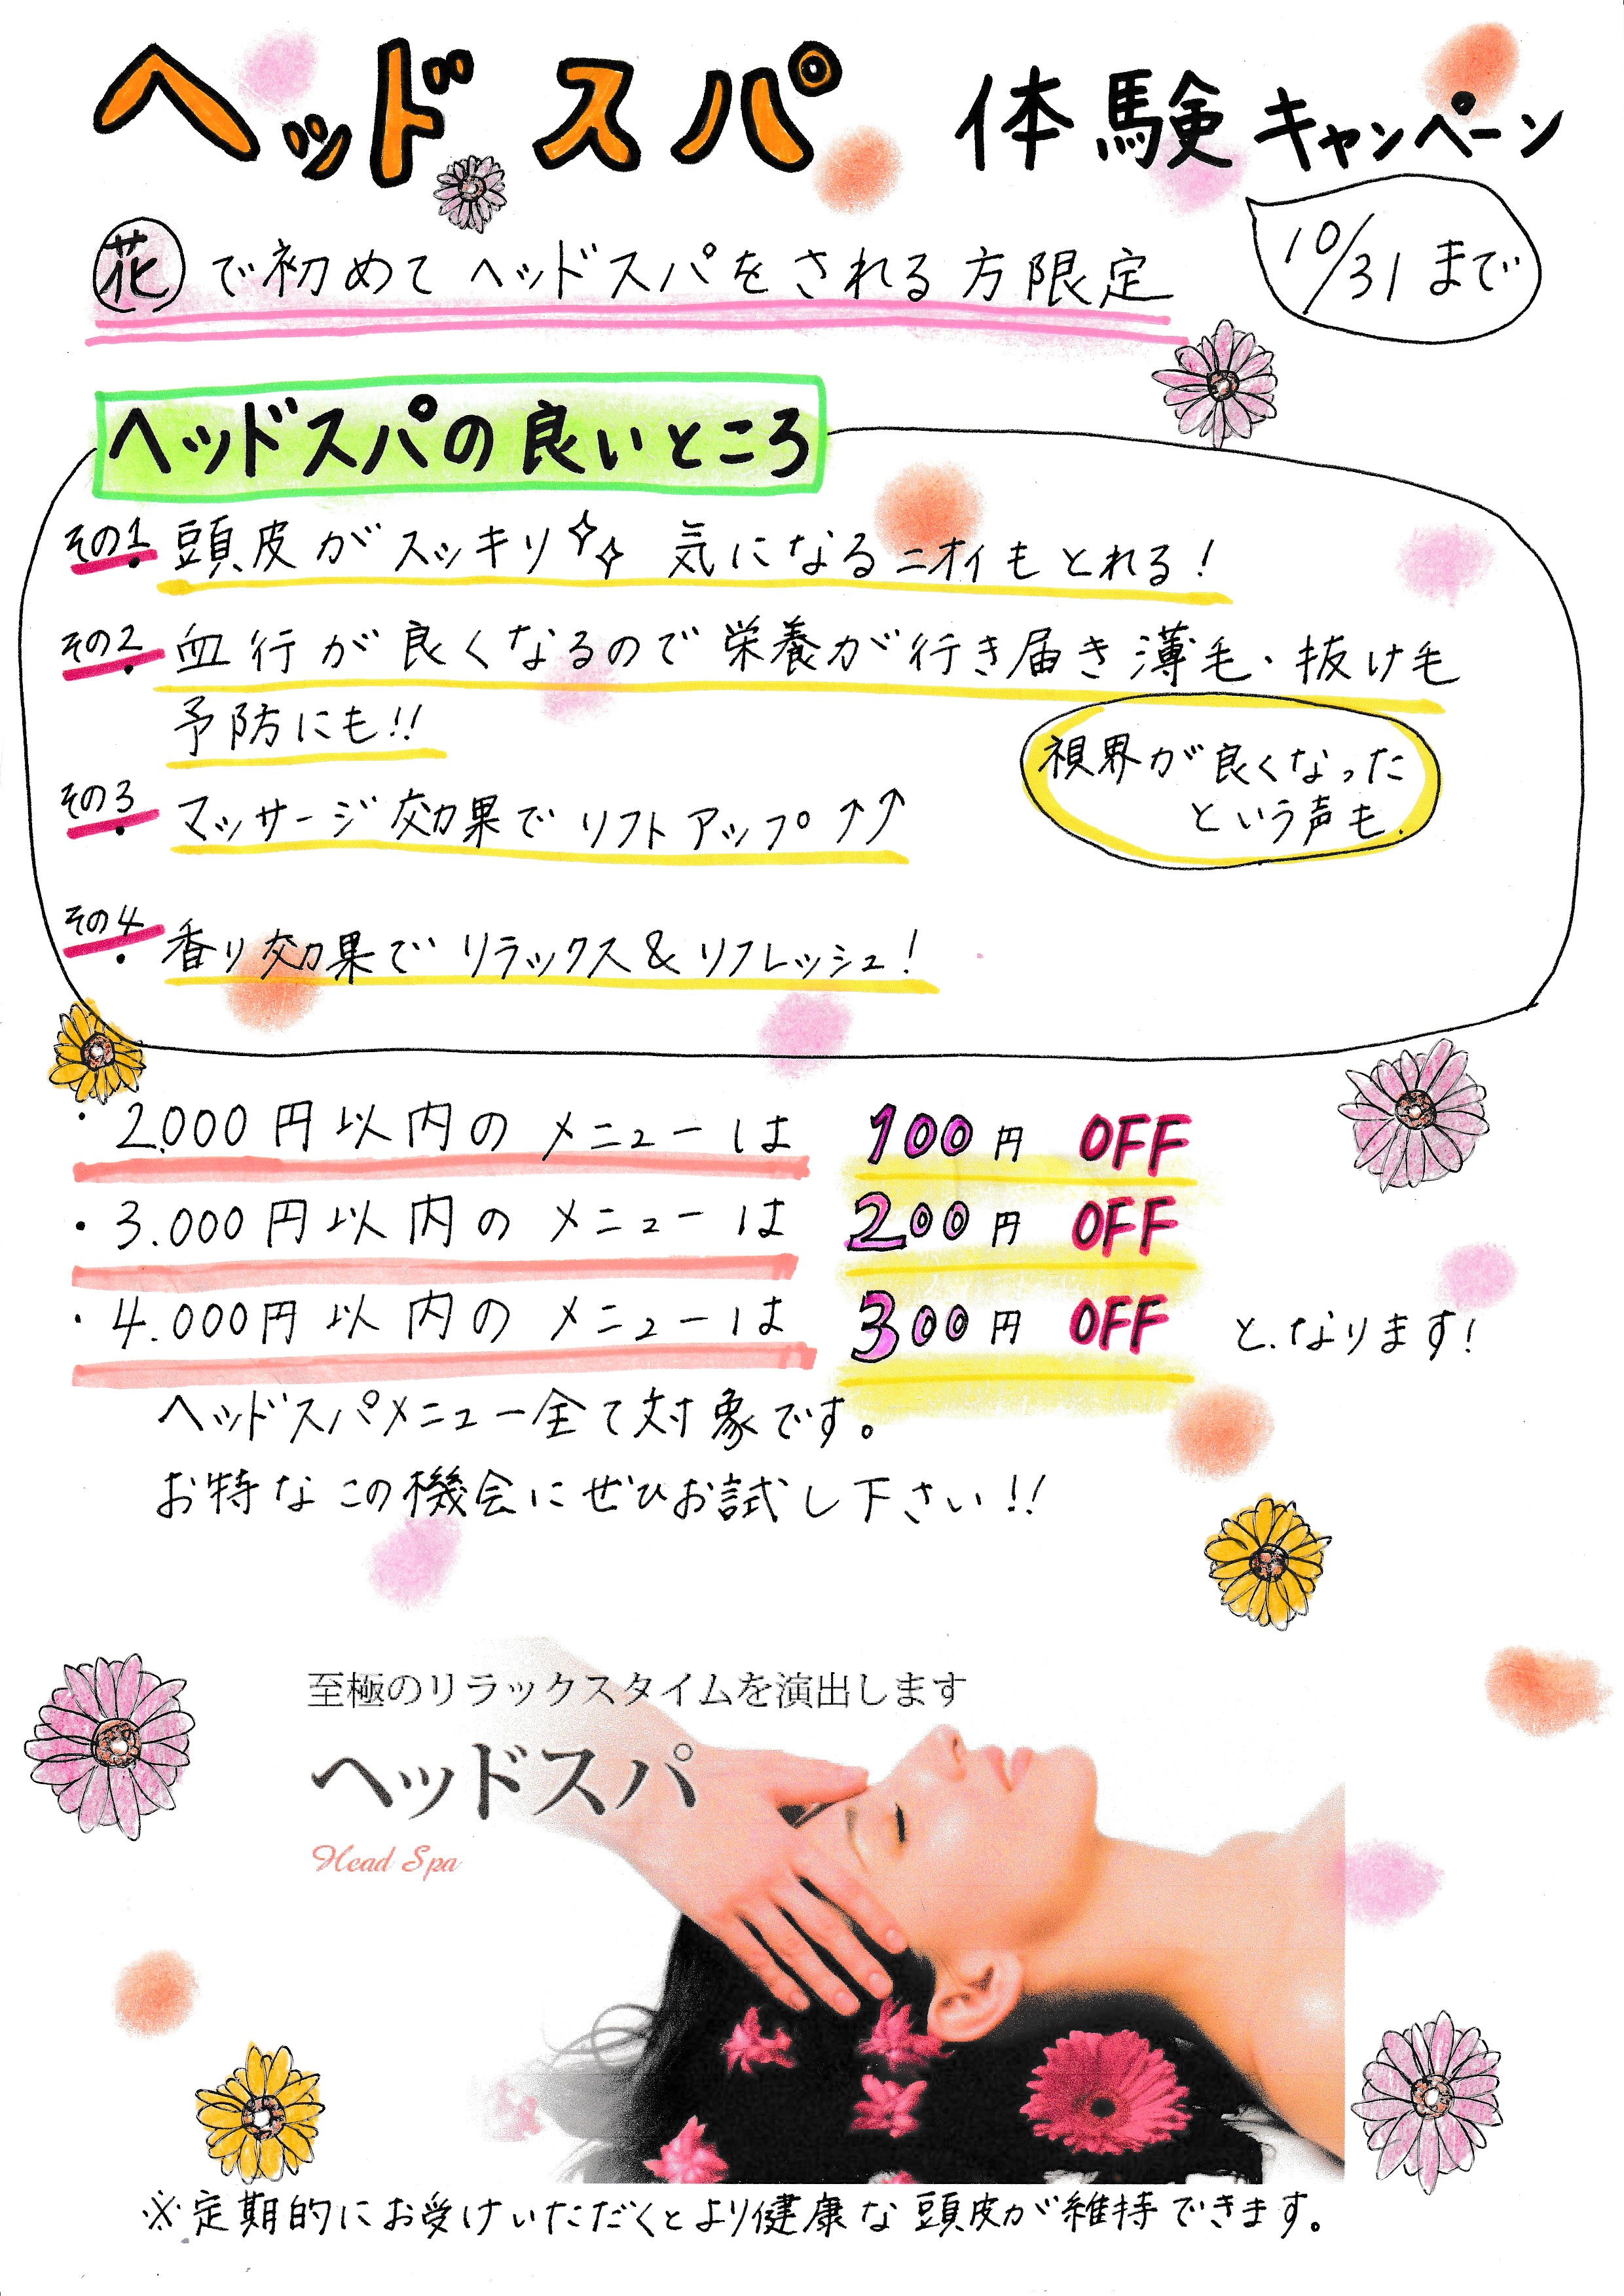 ヘッドスパ 体験キャンペーン
花で初めてヘッドスパをされる方限定
10/31まで
ヘッドスパの良いところ
その1. 頭皮がスッキリ 気になるニオイもとれる!
その2. 血行が良くなるので栄養が行き届き薄毛・抜け毛
予防にも!!
視界が良くなった
という声も.
その3. マッサージ効果でリフトアップ↑↑
その4. 香り効果でリラックス&リフレッシュ!
・2.000円以内のメニューは 100円 OFF
・3.000円以内のメニューは 200円 OFF
・4.000円以内のメニューは 300円 OFF となります!
ヘッドスパメニュー全て対象です。
お特なこの機会にぜひお試し下さい!!
至極のリラックスタイムを演出します
ヘッドスパ
Head Spa
※定期的にお受けいただくとより健康な頭皮が維持できます。